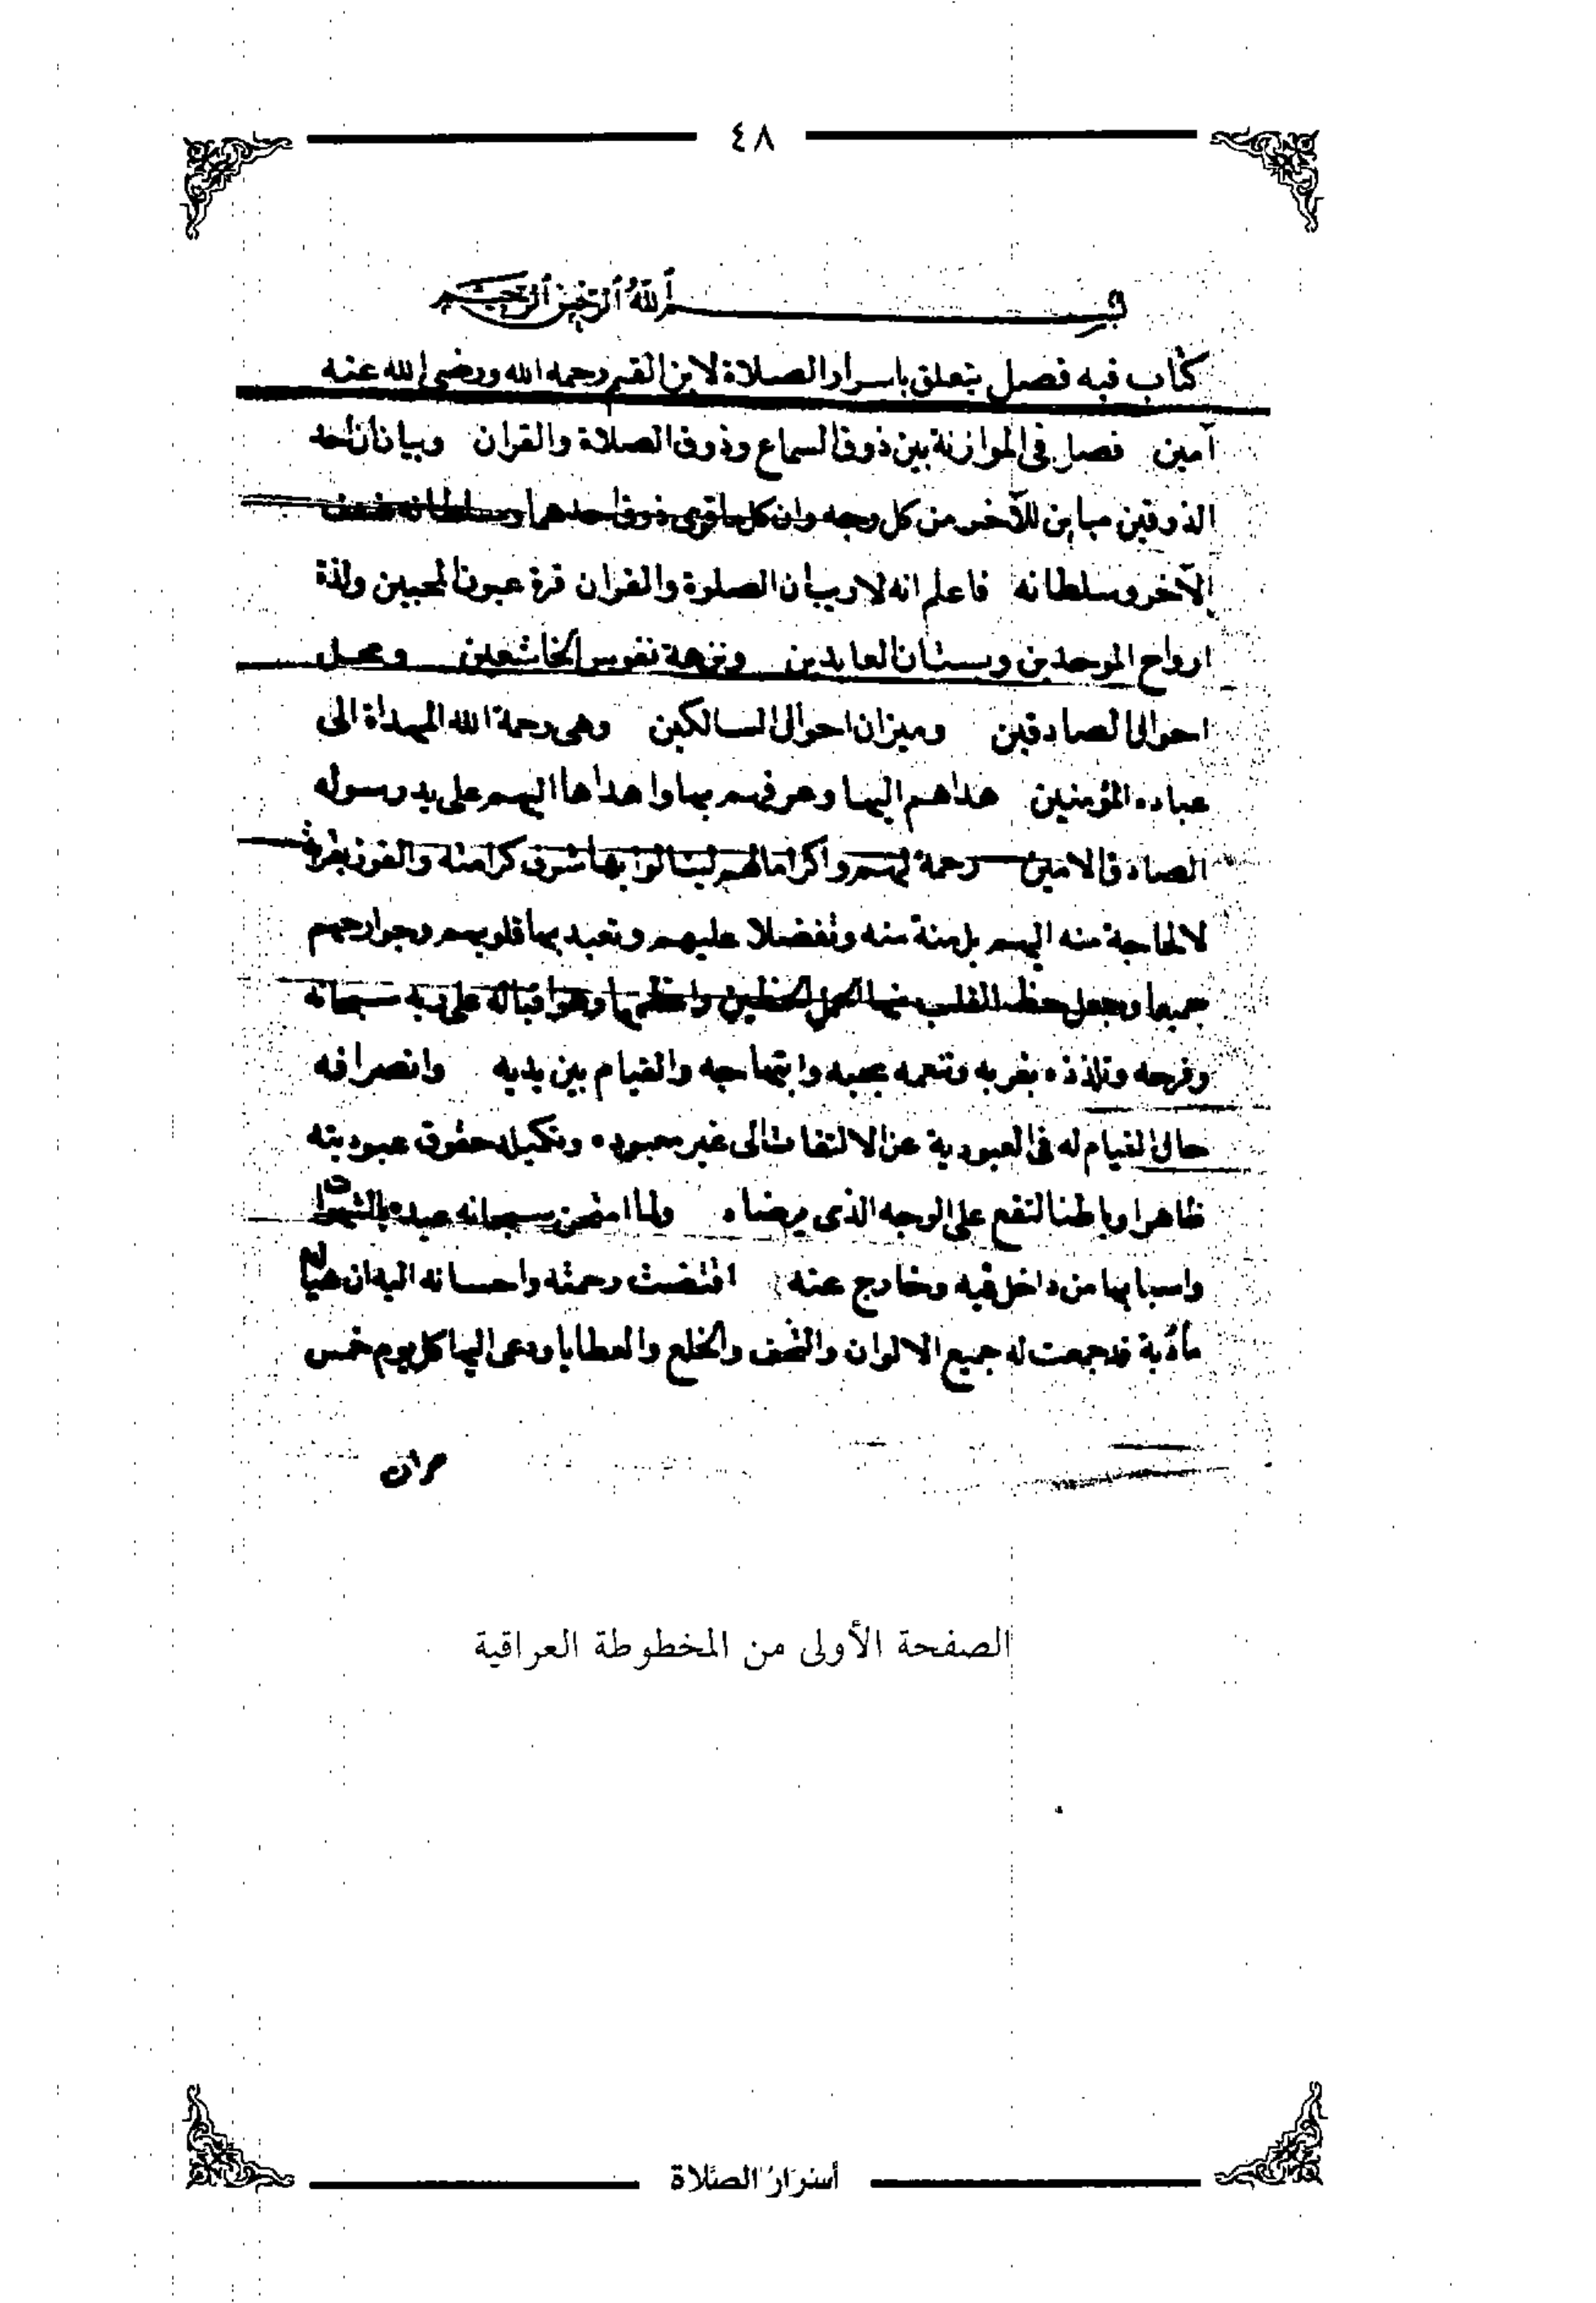 ٤٨
بسم الله الرحمن الرحيم
كتاب فيه فصل يتعلق باسرار الصلاة لابن القيم رحمه الله ورضي الله عنه
آمين فصل في الموازنة بين ذوق السماع وذوق الصلاة والقران وبيان ان احد
الذوقين مباين للآخر من كل وجه وان كل ما قوى ذوق احدهما وسلطانه ضعف
الآخر وسلطانه فاعلم انه لا ريب ان الصلوة والقران قرة عيون المحبين ولذة
ارواح الموحدين وبستان العابدين ونزهة نفوس الخاشعين ومحل
احوال الصادقين وميزان احوال السالكين وهي رحمة الله المهداة الى
عباده المؤمنين هداهم اليها وعرفهم بها واهداها اليهم على يد رسوله
الصادق الامين رحمة لهم واكراما لهم لينالوا بها شرف كرامته والفوز بقربه
لا لحاجة منه اليهم بل منة منه وتفضلا عليهم وتعبد بها قلوبهم وجوارحهم
جميعا وجعل حظ القلب منها اكمل الحظين واعظمها وهو اقباله على ربه سبحانه
وفرحه وتلذذه بقربه وتنعمه بحبه وابتهاجه والقيام بين يديه وانصرافه
حال القيام له في العبودية عن الالتفات الى غير معبوده وتكميله حقوق عبوديته
ظاهرا وباطنا لتقع على الوجه الذي يرضاه ولما امتحن سبحانه عبده بالشهوات
واسبابها من داخل فيه وخارج عنه اقتضت رحمته واحسانه اليه ان هيا له
مأدبة قد جمعت له جميع الالوان والتحف والخلع والعطايا ودعى اليها كل يوم خمس
مرات
الصفحة الأولى من المخطوطة العراقية
أسرار الصلاة